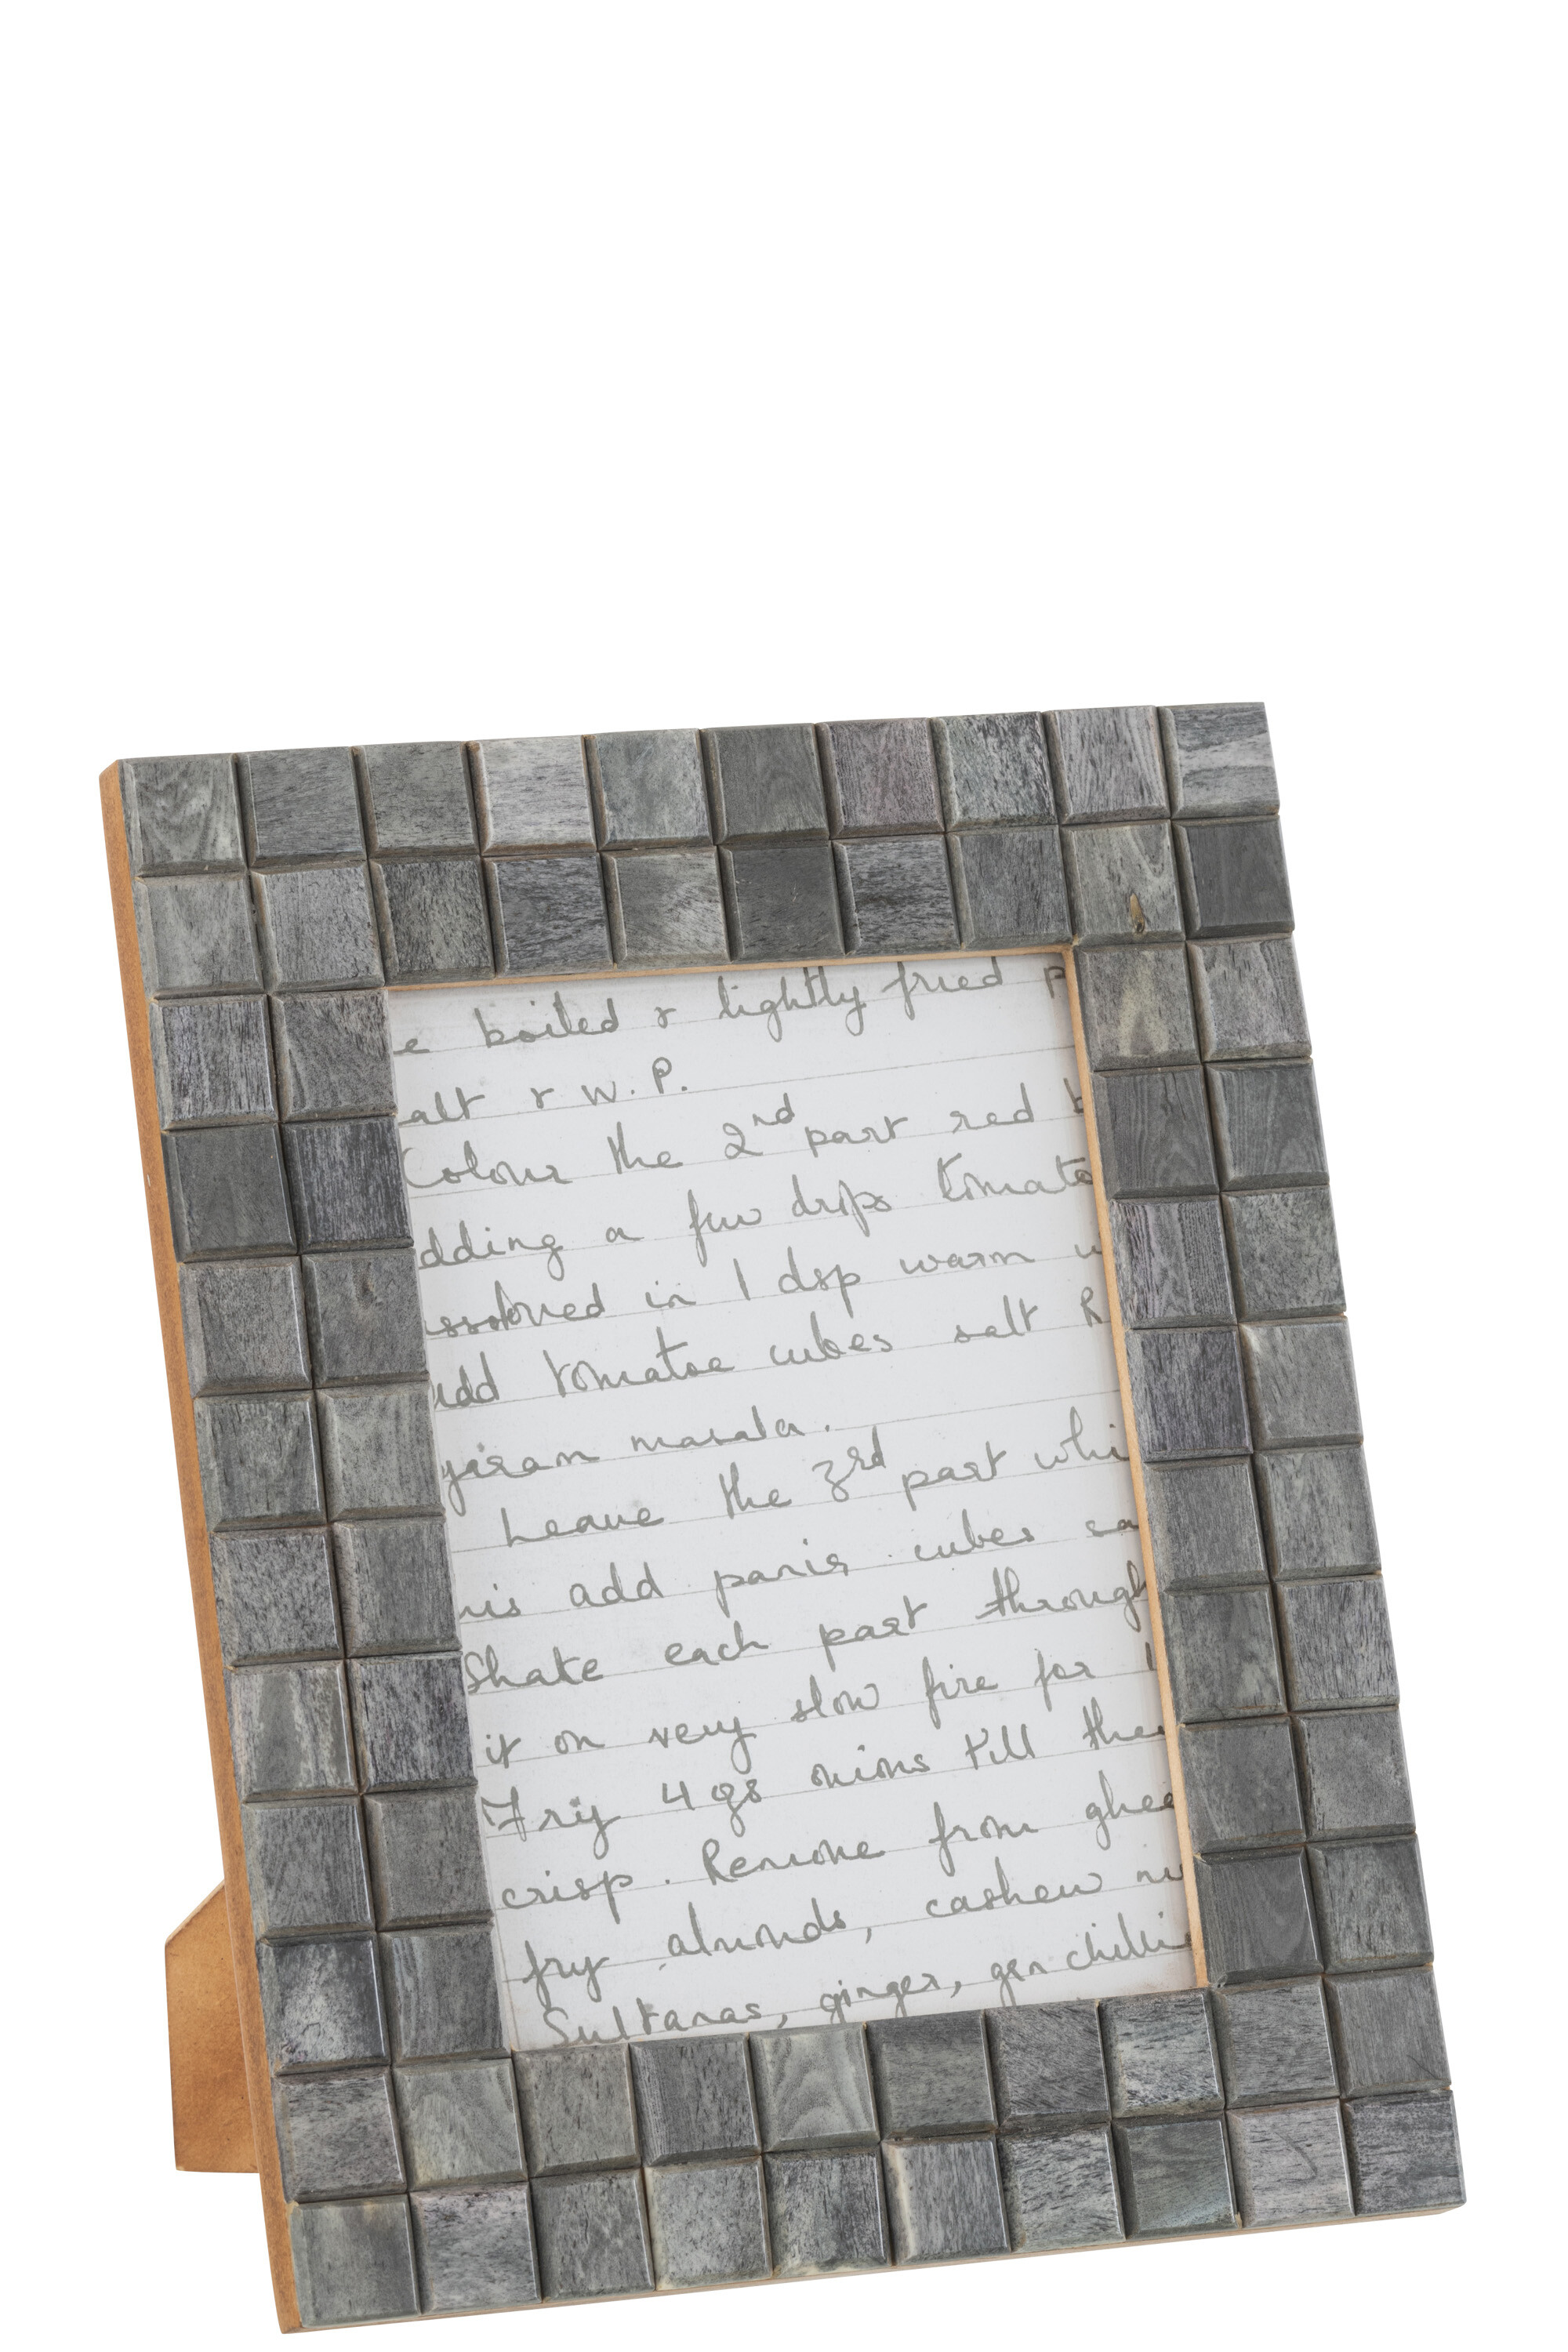 e boiled & lightly fried p
alt & W.P.
Colour the 2nd part red b
dding a few drops tomato
ssolved in 1 dsp warm w
add tomatoe cubes salt R
garam masala.
Leave the 3rd part whi
is add panir cubes sa
Shake each part through
it on very slow fire for 1
Fry 4 gs onions till they
crisp. Remove from ghee
fry almonds, cashew nu
Sultanas, ginger, gen chillie